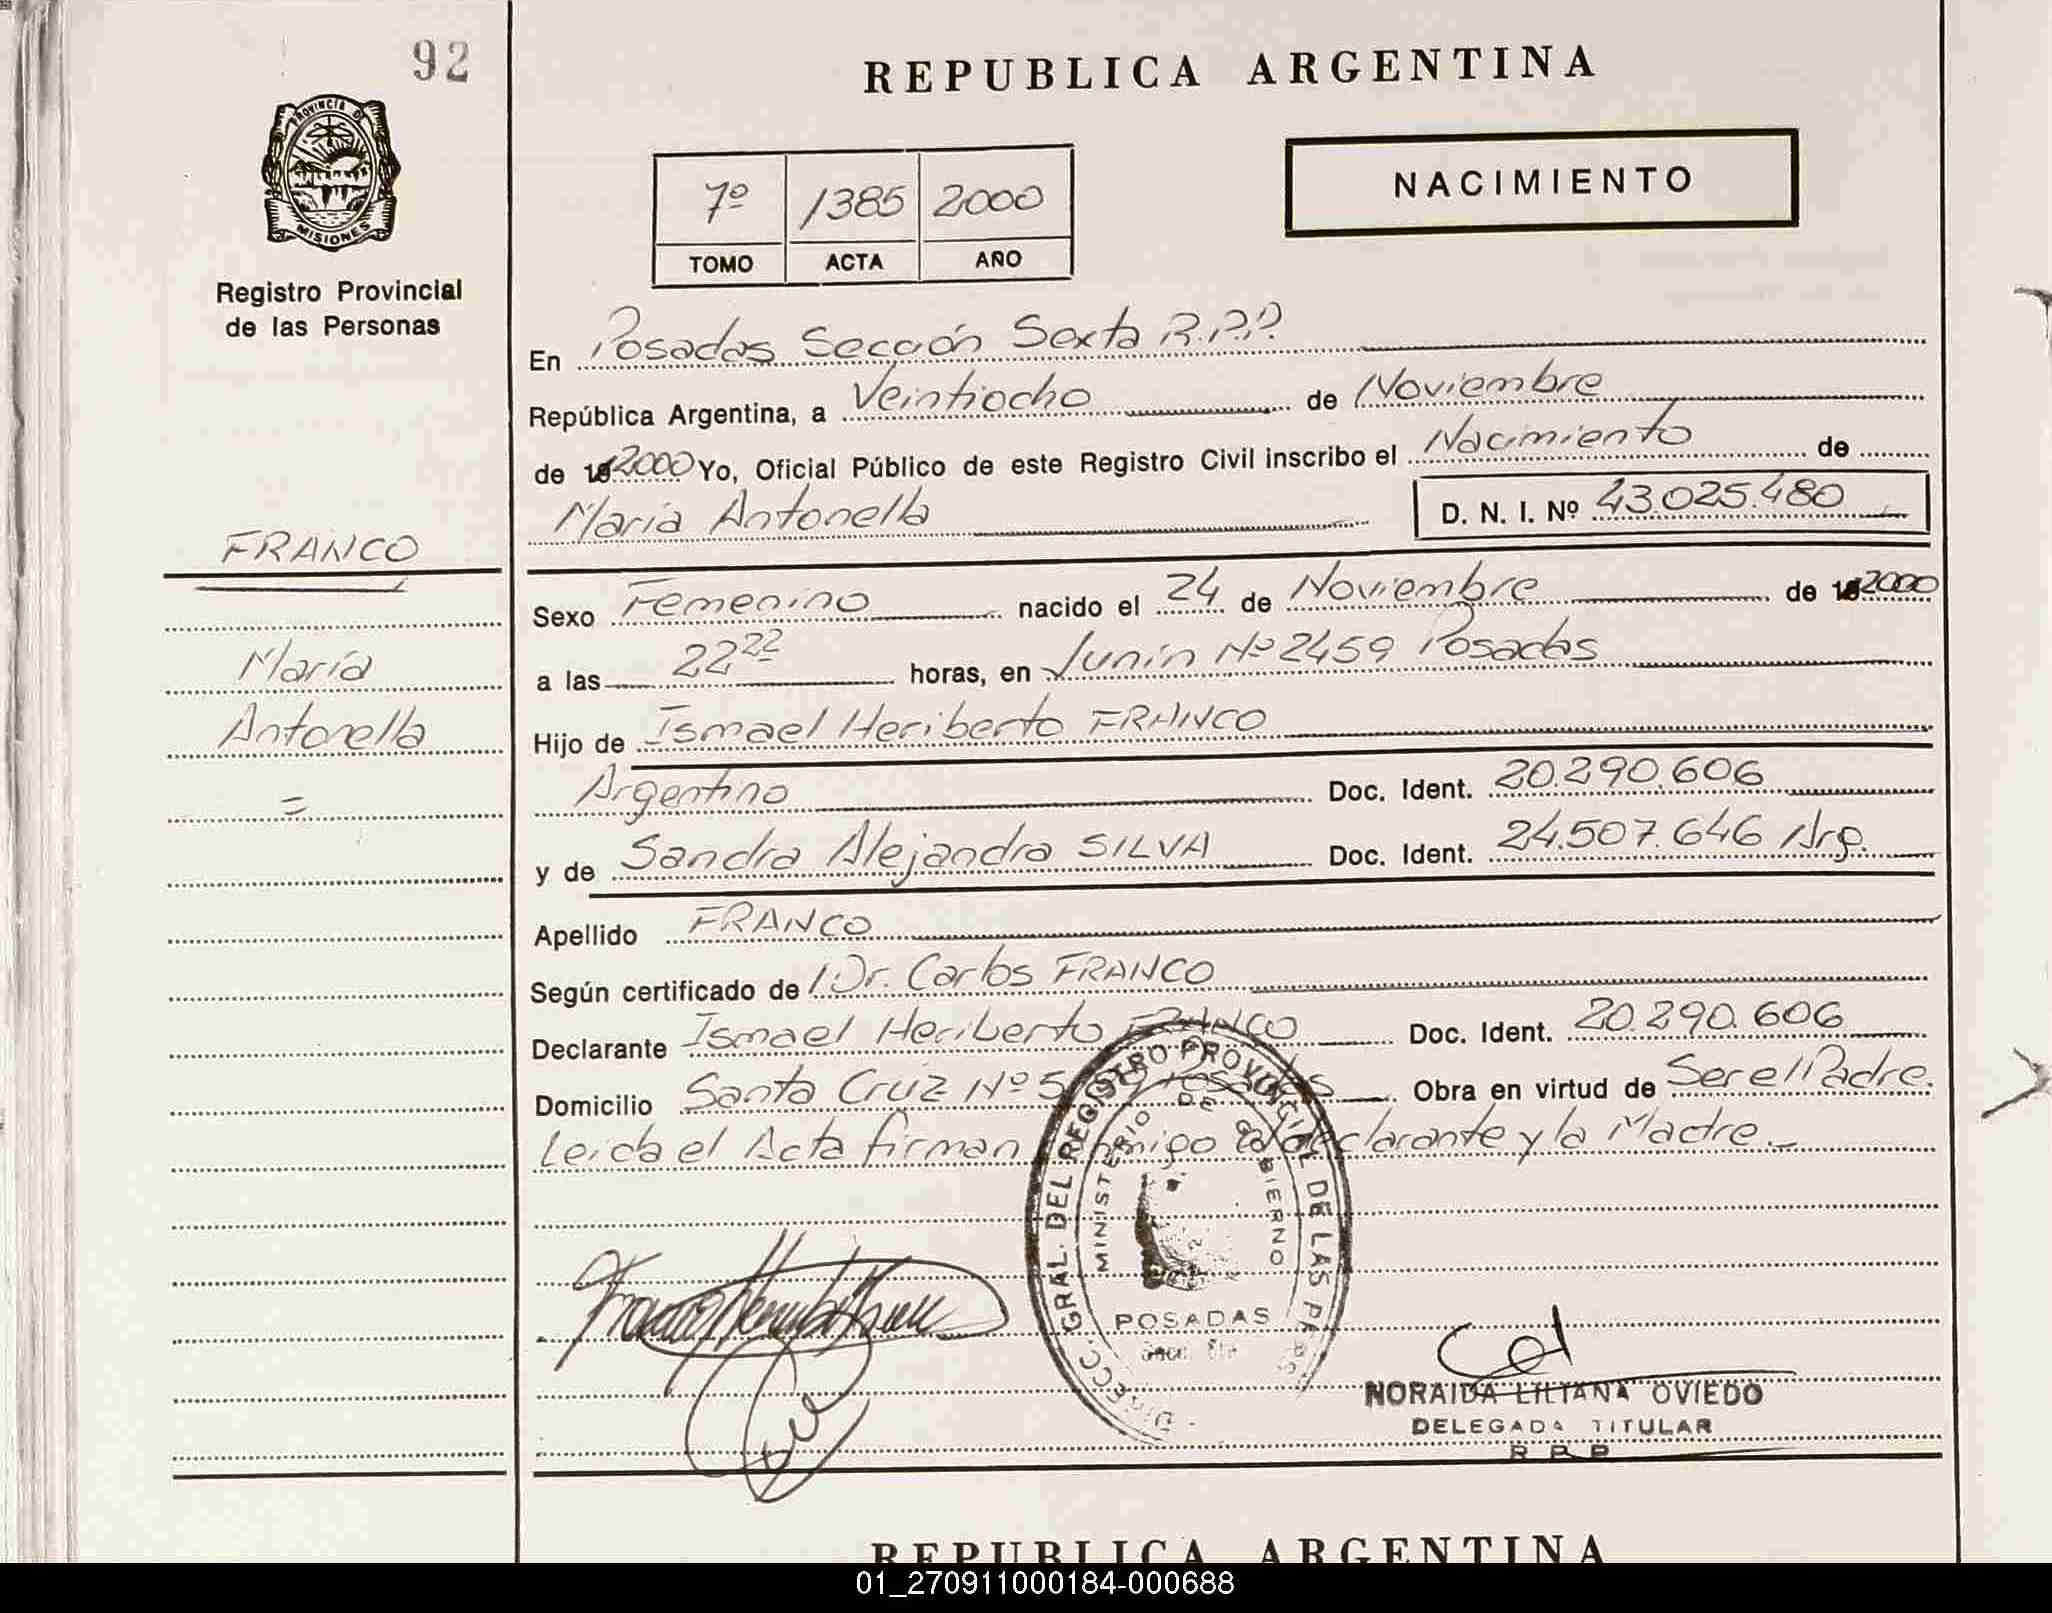 92
REPUBLICA ARGENTINA
PROVINCIA DE
MISIONES
Registro Provincial
de las Personas
7º 1385 2000
TOMO ACTA AÑO
NACIMIENTO
En Posadas Sección Sexta R.P.P.
República Argentina, a Veintiocho de Noviembre
de 192000 Yo, Oficial Público de este Registro Civil inscribo el Nacimiento de
María Antonella D. N. I. Nº 43.025.480
FRANCO
María
Antonella
=
Sexo Femenino nacido el 24 de Noviembre de 192000
a las 22²² horas, en Junín Nº 2459 Posadas
Hijo de Ismael Heriberto FRANCO
Argentino Doc. Ident. 20.290.606
y de Sandra Alejandra SILVA Doc. Ident. 24.507.646 Arg.
Apellido FRANCO
Según certificado de Dr. Carlos FRANCO
Declarante Ismael Heriberto FRANCO Doc. Ident. 20.290.606
Domicilio Santa Cruz Nº Posadas Obra en virtud de Ser el Padre.
Leída el Acta firman conmigo el declarante y la Madre.
DIRECC. GRAL. DEL REGISTRO PROVINCIAL DE LAS
MINISTERIO DE GOBIERNO
POSADAS
NORAIDA LILIANA OVIEDO
DELEGADA TITULAR
R P P
REPUBLICA ARGENTINA
01_270911000184-000688